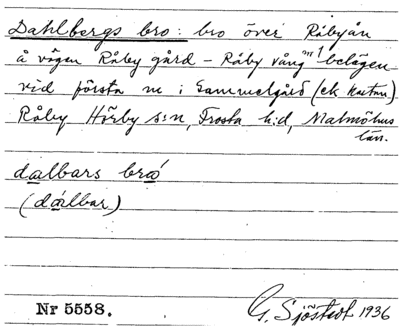 Dahlbergs bro: bro över Råbyån
å vägen Råby gård – Råby vång m 1 belägen
vid första m i Gammelgård (ek kartan)
Råby Hörby s:n, Frosta h:d, Malmöhus
län.
dalbars bro
(dálbar)
Nr 5558. G. Sjöstedt 1936